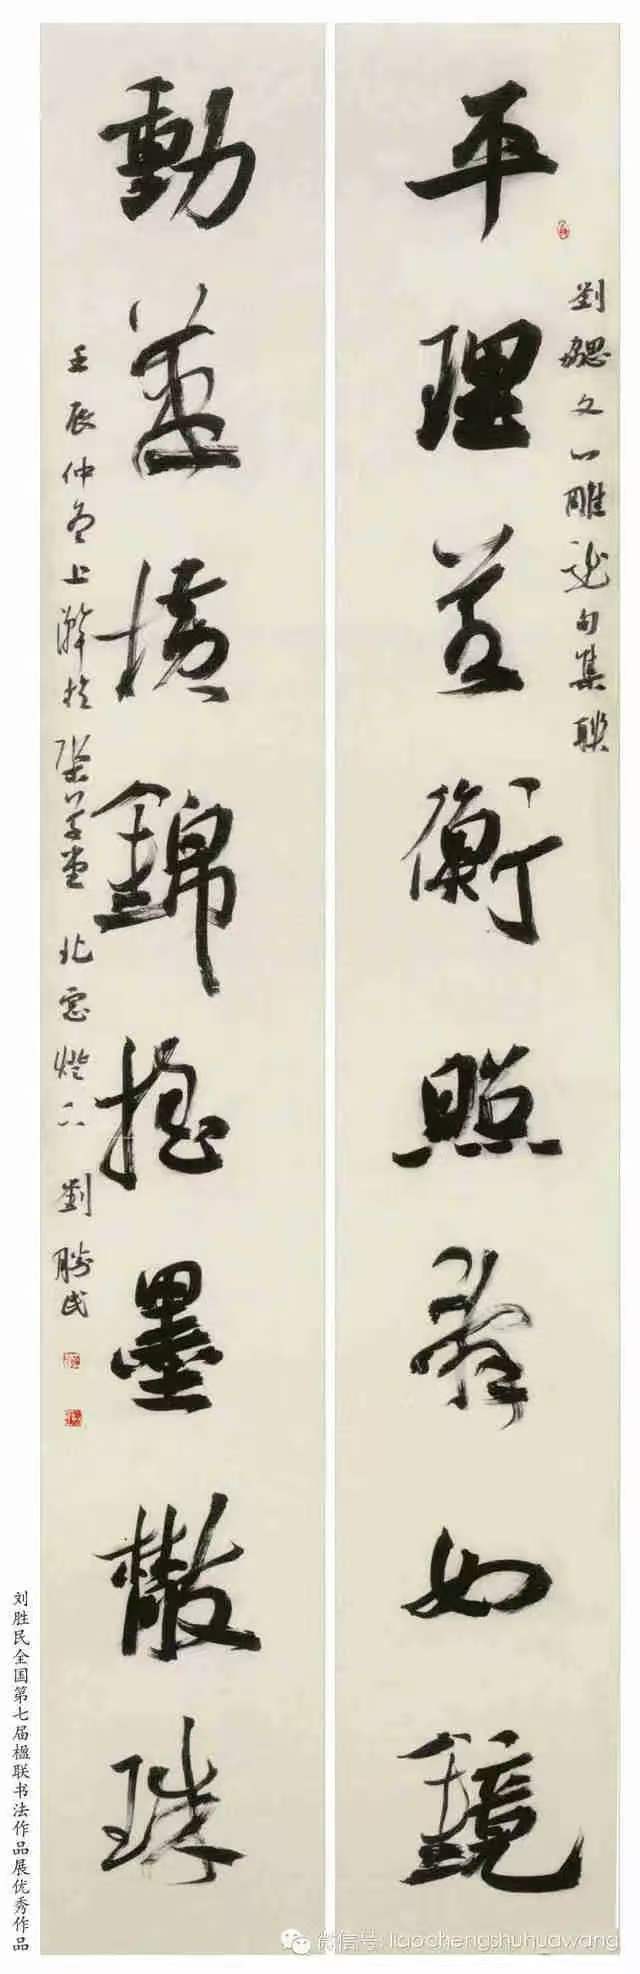 平理若衡照辭如鏡
劉勰文心雕龍句集聯
動橫錦搖墨散珠
壬辰仲上澣於草堂北窗燈下劉勝民
刘胜民全国第七届楹联书法作品展优秀作品
微信号: liaochengshuhuawang